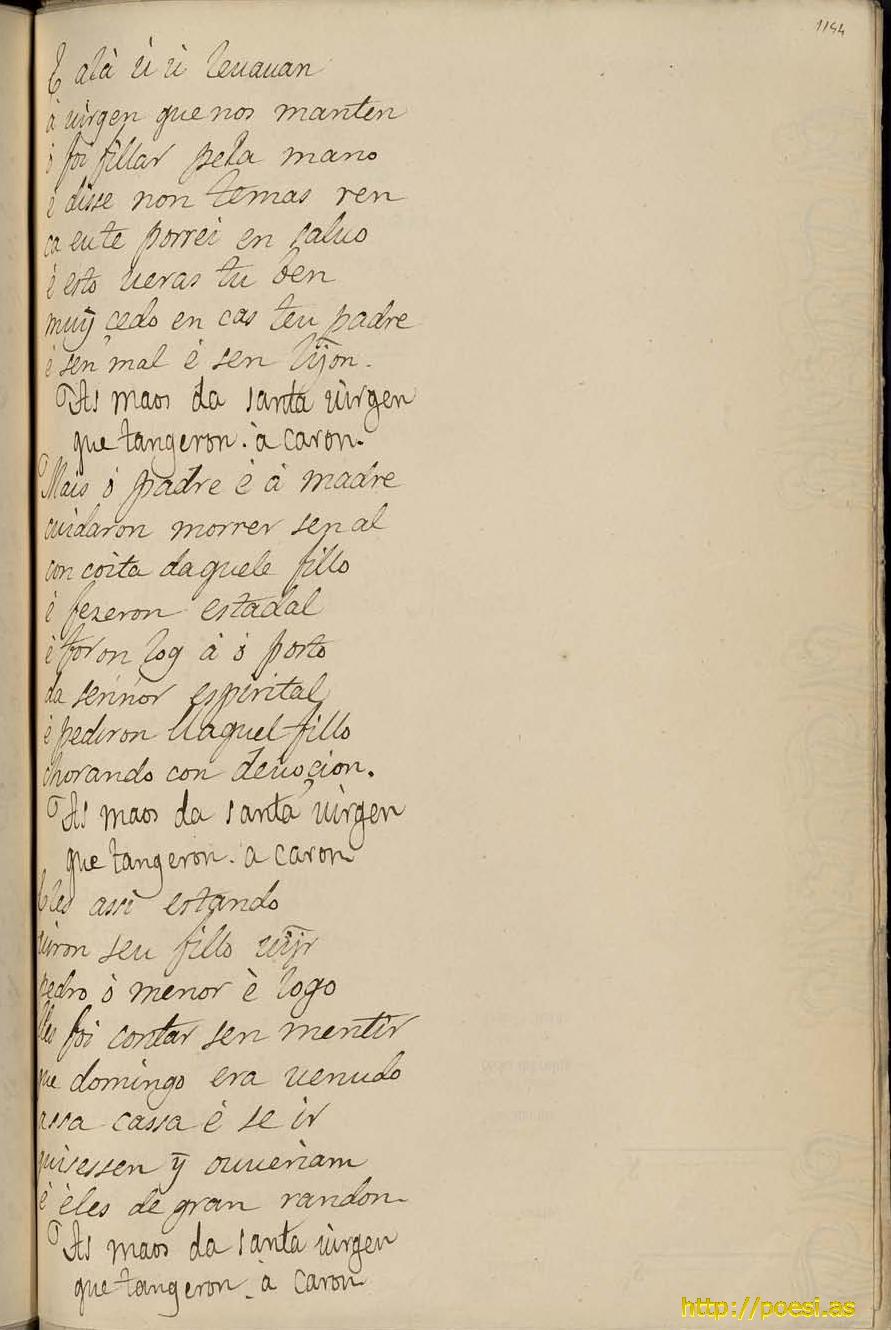 1194
E alà ù ù leuauan
à uirgen que nos manten
ò foi fillar pela mano
è disse non temas ren
ca eu te porrei en saluo
è esto ueras tu ben
muỹ cedo en cas teu padre
è sen mal è sen lijon.
As maos da santa uirgen
que tangeron. à caron.
Mais ò padre è à madre
cuidaron morrer sen al
con coita daquele fillo
è fezeron estadal
è foron log à ò porto
da sennor espirital
è pediron llaquel fillo
chorando con deuoçion.
As maos da santa uirgen
que tangeron. a caron
Eles assi estando
uiron seu fillo uĩjr
pedro ò menor è logo
lles foi contar sen mentir
que domingo era uenudo
assa cassa è se ir
quisessen ỹ ouueriam
è èles de gran randon
As maos da santa uirgen
que tangeron. à caron
http://poesi.as